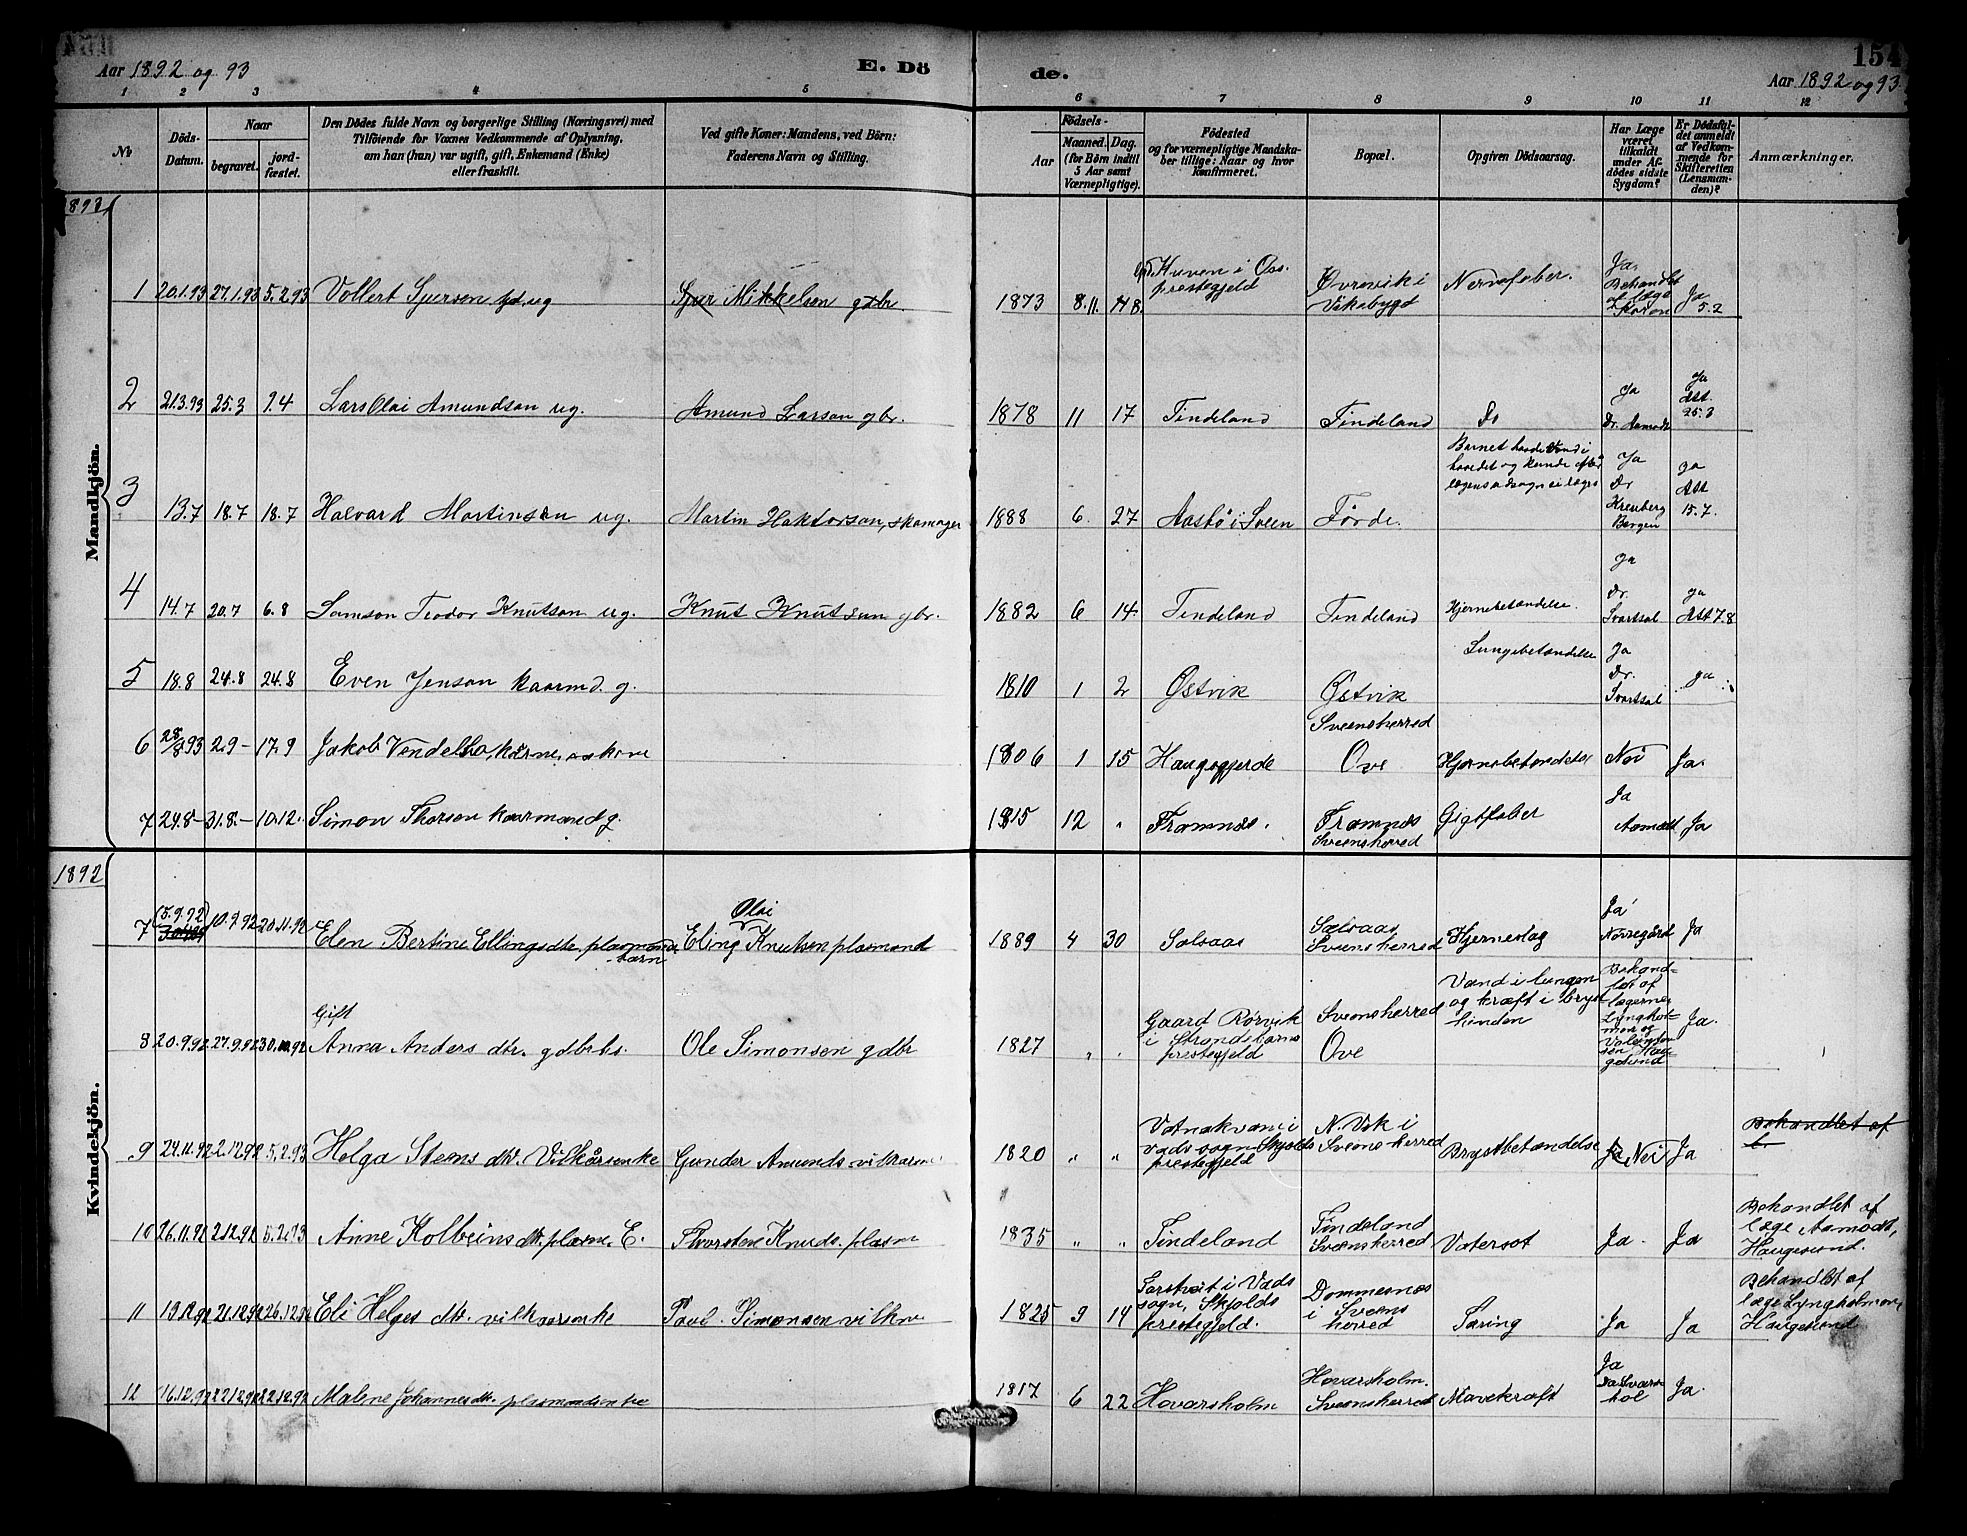 Aar 1892 og 93
E. Dö
de.
154
Aar 1892 og 93
1 2 3 4 5 6 7 8 9 10 11 12
№
Döds-Datum.
Naar
begravet.
jord-fæstet.
Den Dödes fulde Navn og borgerlige Stilling (Næringsvei) med
Tilföiende for Voxnes Vedkommende af Oplysning,
om han (hun) var ugift, gift, Enkemand (Enke)
eller fraskilt.
Ved gifte Koner: Mandens, ved Börn:
Faderens Navn og Stilling.
Födsels-
Aar
Maaned. Dag.
(for Börn indtil
5 Aar samt
Værnepligtige).
Födested
og for værnepligtige Mandska-
ber tillige: Naar og hvor
Konfirmeret.
Bopæl.
Opgiven Dödsaarsag.
Har Læge
været
tilkaldt
under Af-
dödes sidste
Sygdom?
Er Dödsfal-
det anmeldt
af Vedkom-
mende for
Skifteretten
(Lensman-
den)?
Anmærkninger.
1893
Mandkjön.
1 20.1.93 27.1.93 5.2.93 Vollert Sjurson ug Sjur Mikkelsen gdbr. 1873 8. 11. Huven i Øs. prestegjeld Øvrevik i Vikebygd Nervefeber. Ja. Behandlet af læge Ja 5.2
2 21.3.93 25.3 7.4 Lars Olai Amundson ug. Amund Larson gbr. 1878 11 17 Tindeland Tindeland Do Ja Dr. Aamodt Ja Att. 25.3
3 13.7 18.7 18.7 Halvard Martinson ug. Martin Haktorson, skomager 1888 6. 27 Aastö i Sveen Förde. Barnet havde Vand i hovedet og kunde efter lægens udsagn ei læges Ja Dr Kreuberg Bergen Ja Att 15.7.
4 14.7 20.7 6.8 Samson Teodor Knutson ug. Knut Knutson gbr. 1882 6 14 Tindeland Tindeland Hjernebetændelse. Ja Dr. Svartsal Ja Att 7.8
5 18.8 24.8 24.8 Even Jenson kaarmd. g. 1810 1 2 Østvik Østvik Sveensherred Lungebetændelse Ja Dr. Svartsal Ja
6 28/8 93 2.9 – 17.9 Jakob Vendelbo, 1806 1 15 Haugsgjerde Ove Hjernebetændelse Nei Ja.
7 24.8 – 31.8. – 10.12. Simon Thorsen kaarmand g. 1815 12 " Framnes. Framnes Sveensherred Gigtfeber Ja Aamodt Ja
1892
Kvindekjön.
7 (5.9.92) 10.9.92 20.11.92 Elen Bertine Ellingsdtr. plasmands barn Eling Olai Knutsen plasmand 1889 4 30 Salsaas Salsaas Sveensherred Hjerneslag Ja Norregård Ja
8 20.9.92 27.9.92 30.10.92 Gift Anna Anders dtr. gdbrks. Ole Simonsen gdbr 1827 " " Gaard Rørvik i Strandebarms prestegjeld Sveensherred Ove Vand i lungen og kræft i brysthinden Behandlet af lægerne Lyngholmen og Haugesund Ja.
9 24.11.92 2.12.92 5.2.93 Helga Stens dtr. Vilkårsenke Gunder Amunds. vilkarm. 1820 " " Vatnakvam i Vads sogn Skjolds prestegjeld N. Vik i Sveensherred Brystbetændelse Ja Nei Ja Behandlet af l
10 26.11.92 2.12.92 5.2.93 Anne Kolbeins dtr. plasm. E. Thorsten Knuds. plasm 1835 " " Tindeland Tindeland Sveensherred Vatersot Ja. Ja Behandlet af læge Aamodt, Haugesund.
11 13.12.92 21.12.92 26.12.92 Eli Helges dtr. vilkaarsenke Paul Simonsen vilkm 1825 9 14 Tarstveit i Vads sogn, Skjolds prestegjeld. Dommesnes i Sveens herred Tæring Ja Ja Behandlet af læge Lyngholmen, Haugesund
12 16.12.92 22.12.92 22.12.92 Malene Johannesdtr. plasmandsenke 1817 6 22 Hovarsholm Hovarsholm. Sveensherred Mavekræft Ja Ja.